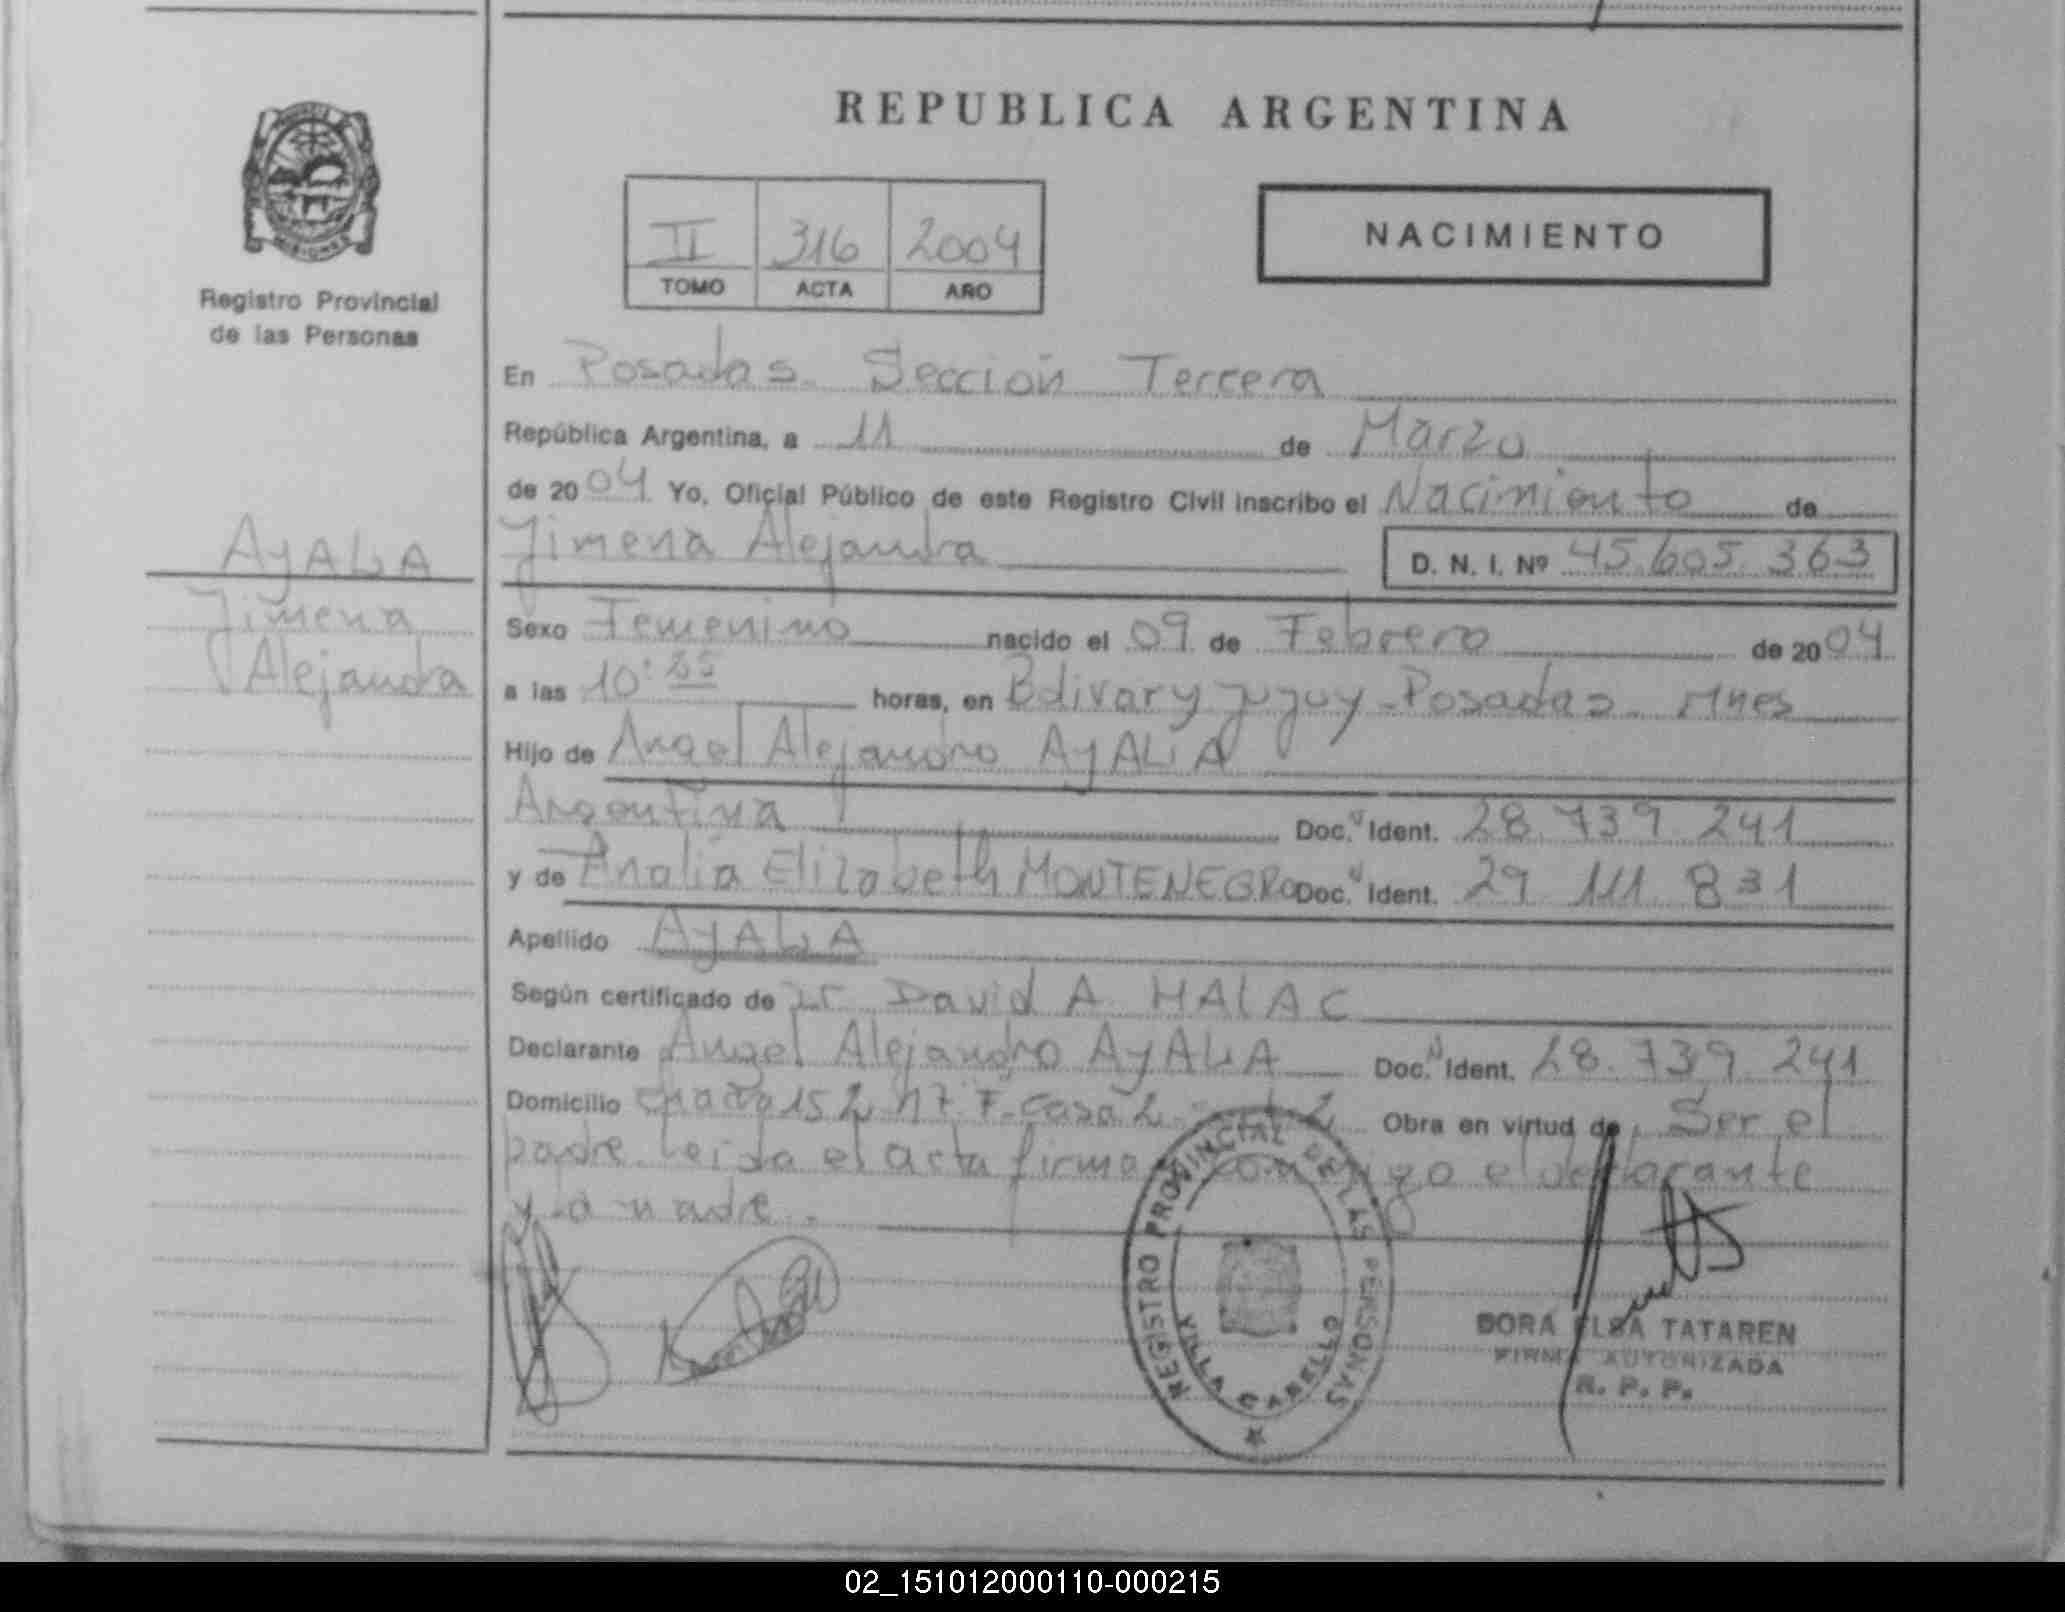 REPUBLICA ARGENTINA
MISIONES
Registro Provincial
de las Personas
II 316 2004
TOMO ACTA AÑO
NACIMIENTO
En Posadas Sección Tercera
República Argentina, a 11 de Marzo
de 2004 Yo, Oficial Público de este Registro Civil inscribo el Nacimiento de
Jimena Alejandra D. N. I. Nº 45.605.363
AYALA
Jimena
Alejandra
Sexo Femenino nacido el 09 de Febrero de 2004
a las 10: horas, en Bolivar y Jujuy - Posadas - Mnes
Hijo de Angel Alejandro AYALA
Argentina Doc. Ident. 28.739.241
y de Analia Elizabeth MONTENEGRO Doc. Ident. 29.111.831
Apellido AYALA
Según certificado de David A. HALAC
Declarante Angel Alejandro AYALA Doc. Ident. 28.739.241
Domicilio 152 Casa 2 Obra en virtud de Ser el
padre. Leida el acta firma conmigo el declarante
y la madre.
REGISTRO PROVINCIAL DE LAS PERSONAS
VILLA CABELLO
DORA ELSA TATAREN
FIRMA AUTORIZADA
R. P. P.
02_151012000110-000215